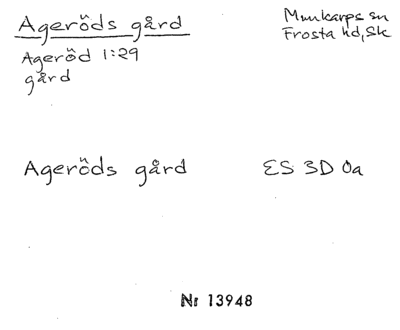 Ageröds gård
Munkarps sn
Frosta hd, Sk
Ageröd 1:29
gård
Ageröds gård ES 3D 0a
Nr 13948